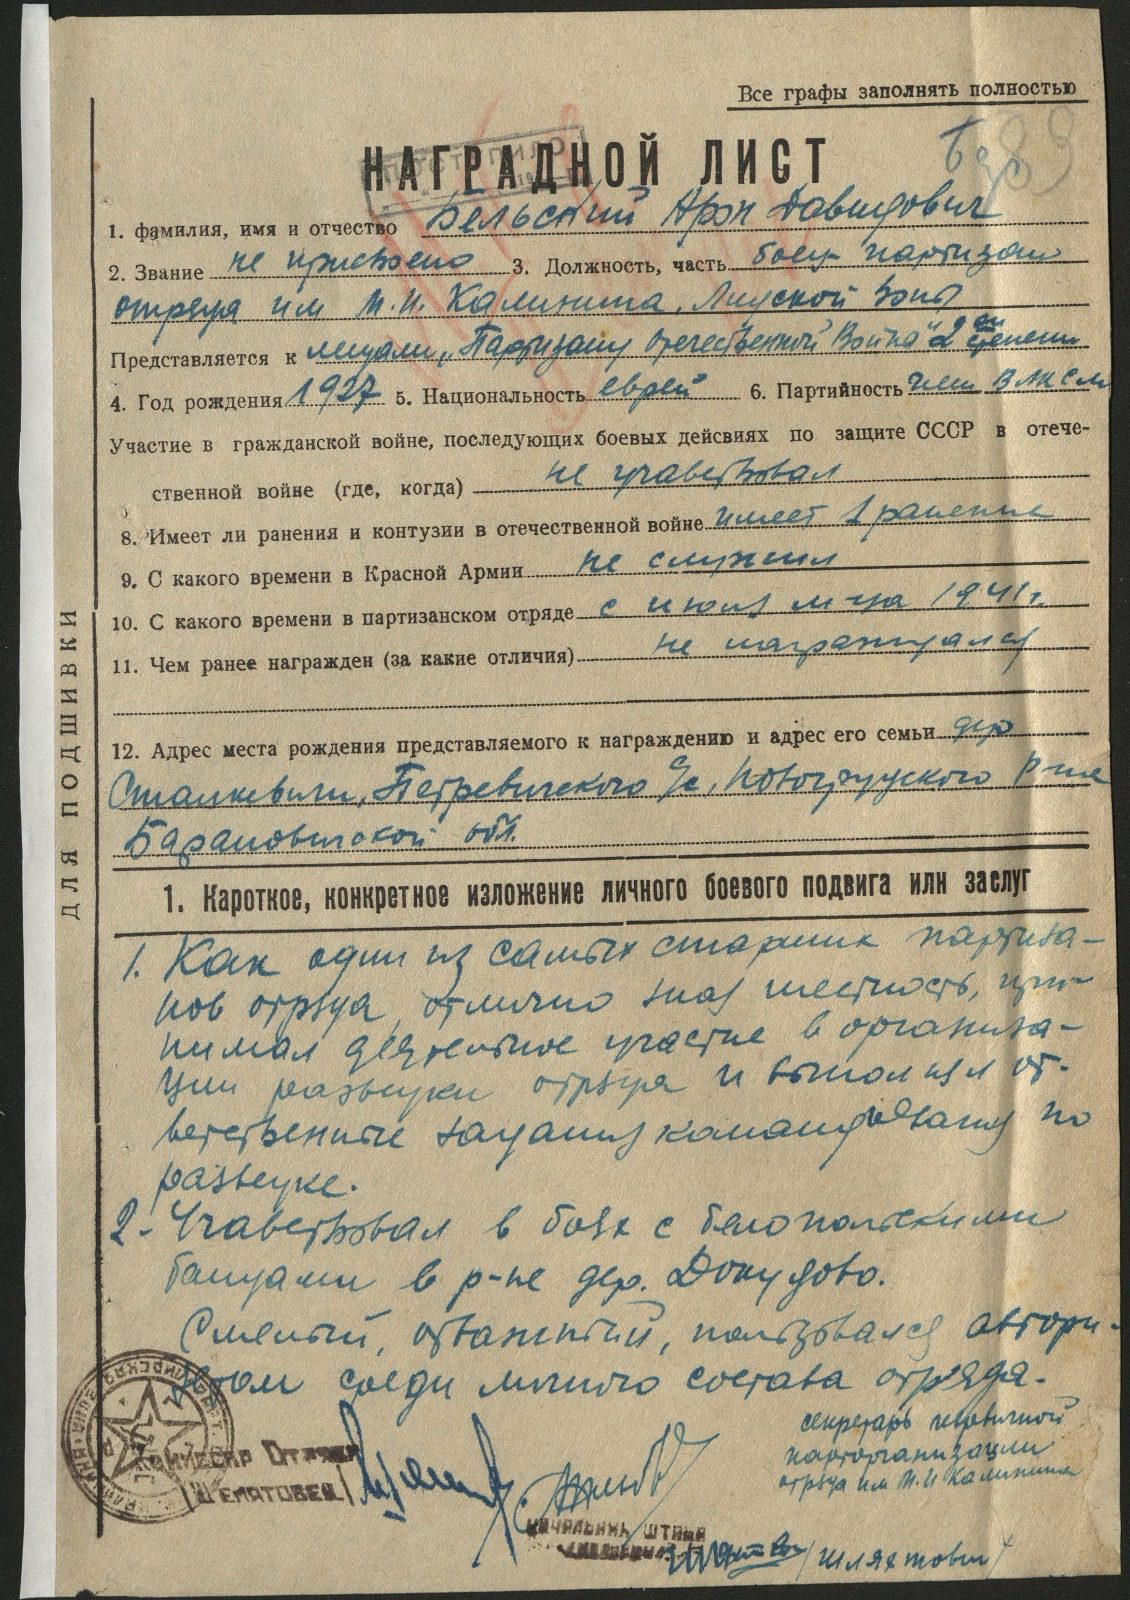 Все графы заполнять полностью
89
ПОСТУПИЛО
НАГРАДНОЙ ЛИСТ
1. фамилия, имя и отчество Бельский Арон Давидович
2. Звание не присвоено 3. Должность, часть боец партизан
отряда им М.И. Калинина, Лидской зоны
Представляется к медали „Партизану Отечественной Война" 2ой степени
4. Год рождения 1927 5. Национальность еврей 6. Партийность член ВЛКСМ
Участие в гражданской войне, последующих боевых дейсвиях по защите СССР в отече-
ственной войне (где, когда) не учавствовал
8. Имеет ли ранения и контузии в отечественной войне имеет 1 ранение
9. С какого времени в Красной Армии не служил
10. С какого времени в партизанском отряде с июля м-ца 1941г.
11. Чем ранее награжден (за какие отличия) не награждался
12. Адрес места рождения представляемого к награждению и адрес его семьи дер
Станкевичи, Петревичского с/с, Новогрудского р-на
Барановичской обл.
ДЛЯ ПОДШИВКИ
1. Кароткое, конкретное изложение личного боевого подвига илн заслуг
1. Как один из самых старших партиза-
нов отряда, отлично зная местность, при-
нимал деятельное участие в организа-
ции разведки отряда и выполнял от-
ветственные задания командования по
разведке.
2- Учавствовал в боях с белопольскими
бандами в р-не дер. Докудово.
Смелый, отважный, пользовался автори-
тетом среди личного состава отряда.
секретарь первичной
парторганизации
отряда им М.И Калинина
КОМИССАР ОТРЯДА
/ШЕМЯТОВЕЦ/
НАЧАЛЬНИК ШТАБА
/Шляхтович/